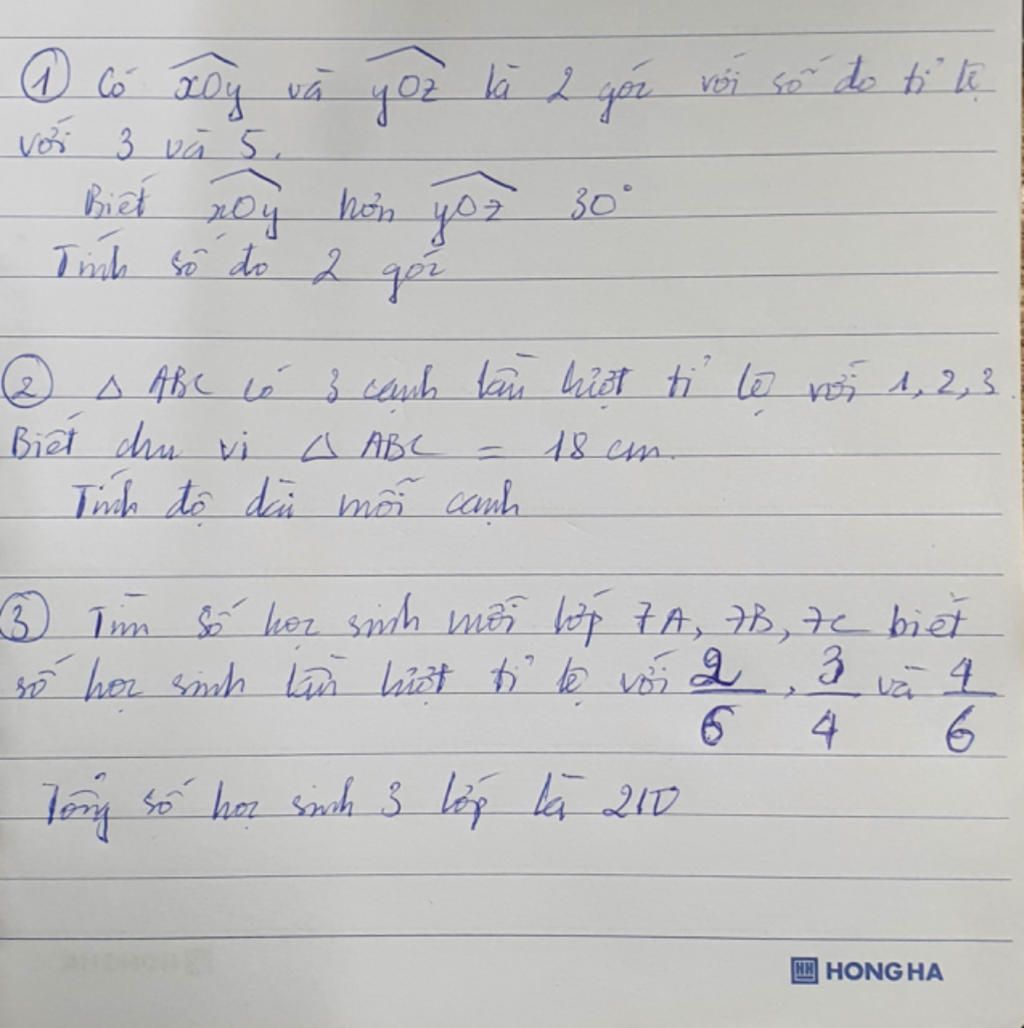 ① Có xOy và yOz là 2 góc với số đo tỉ lệ
với 3 và 5.
Biết xOy hơn yOz 30°
Tính số đo 2 góc
② △ ABC có 3 cạnh lần lượt tỉ lệ với 1, 2, 3.
Biết chu vi △ ABC = 18 cm.
Tính độ dài mỗi cạnh
③ Tìm số học sinh mỗi lớp 7A, 7B, 7C biết
số học sinh lần lượt tỉ lệ với 2/6, 3/4 và 4/6
Tổng số học sinh 3 lớp là 210
HH HONG HA